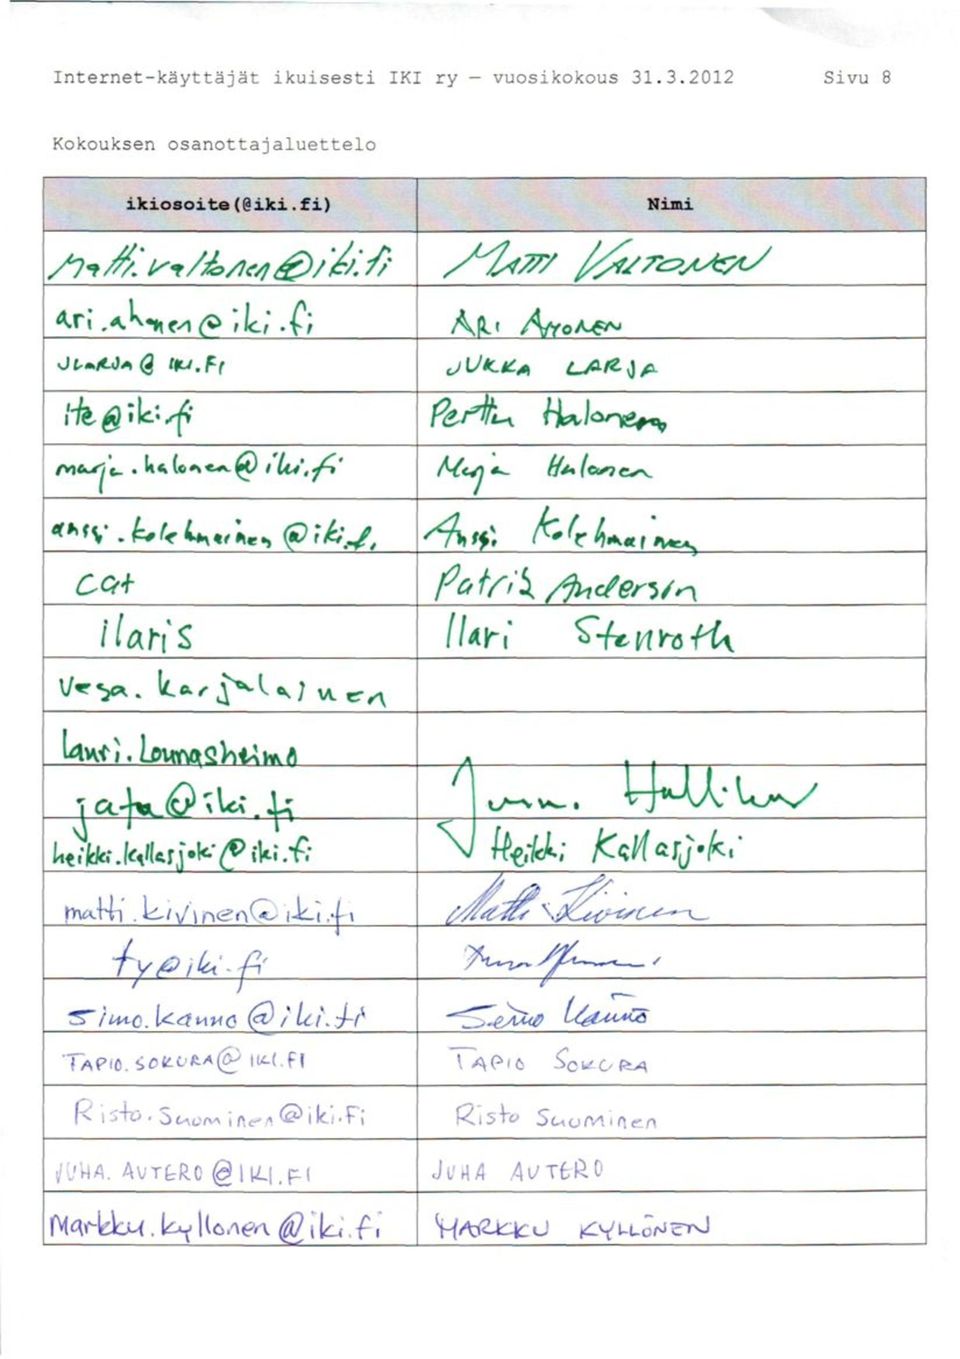 Internet-käyttäjät ikuisesti IKI ry – vuosikokous 31.3.2012 Sivu 8
Kokouksen osanottajaluettelo
ikiosoite(@iki.fi) Nimi
Matti.valtonen@iki.fi MATTI VALTONEN
ari.ahonen@iki.fi ARI AHONEN
JLARJA@IKI.FI JUKKA LARJA
ite@iki.fi Perttu Halonen
marja.halonen@iki.fi Marja Halonen
anssi.kolehmainen@iki.fi Anssi Kolehmainen
cat Patrik Anderson
ilaris Ilari Stenroth
Vesa.karjalainen
lauri.lounasheimo
jafa@iki.fi
heikki.kallasjoki@iki.fi Heikki Kallasjoki
matti.kivinen@iki.fi Matti Kivinen
ty@iki.fi
simo.kanno@iki.fi Simo Kanno
TAPIO.SOKURA@IKI.FI TAPIO SOKURA
Risto.Suominen@iki.fi Risto Suominen
JUHA.AUTERO@IKI.FI JUHA AUTERO
Markku.kyllonen@iki.fi MARKKU KYLLÖNEN